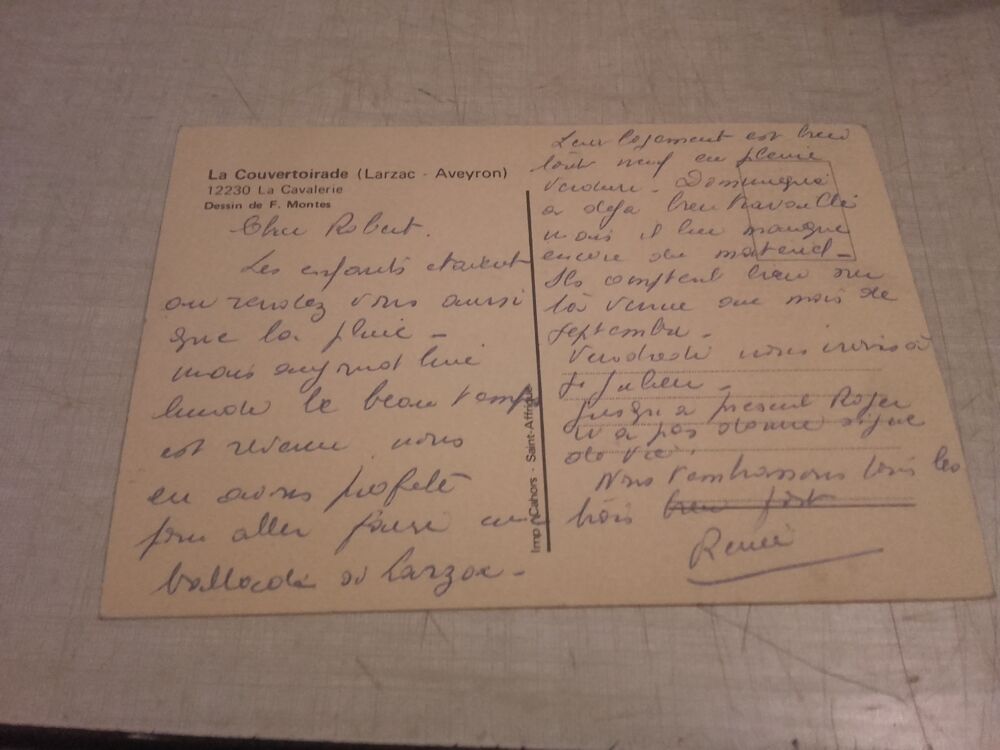 La Couvertoirade (Larzac - Aveyron)
12230 La Cavalerie
Dessin de F. Montes
Cher Robert.
Les enfants étaient
au rendez vous aussi
que la pluie -
mais aujourd'hui
lundi le beau temps
est revenu nous
en avons profité
pour aller faire une
ballade au Larzac -
Imp. Cahors - Saint-Affrique
Leur logement est bien
tout neuf en pleine
verdure - Dominique
a déjà bien travaillé
mais il lui manque
encore du matériel -
Ils comptent bien sur
ta venue au mois de
septembre -
Vendredi nous irons à
St Julien -
Jusqu'à présent Roger
n'a pas donné signe
de vie.
Nous t'embrassons tous les
trois bien fort
Renée